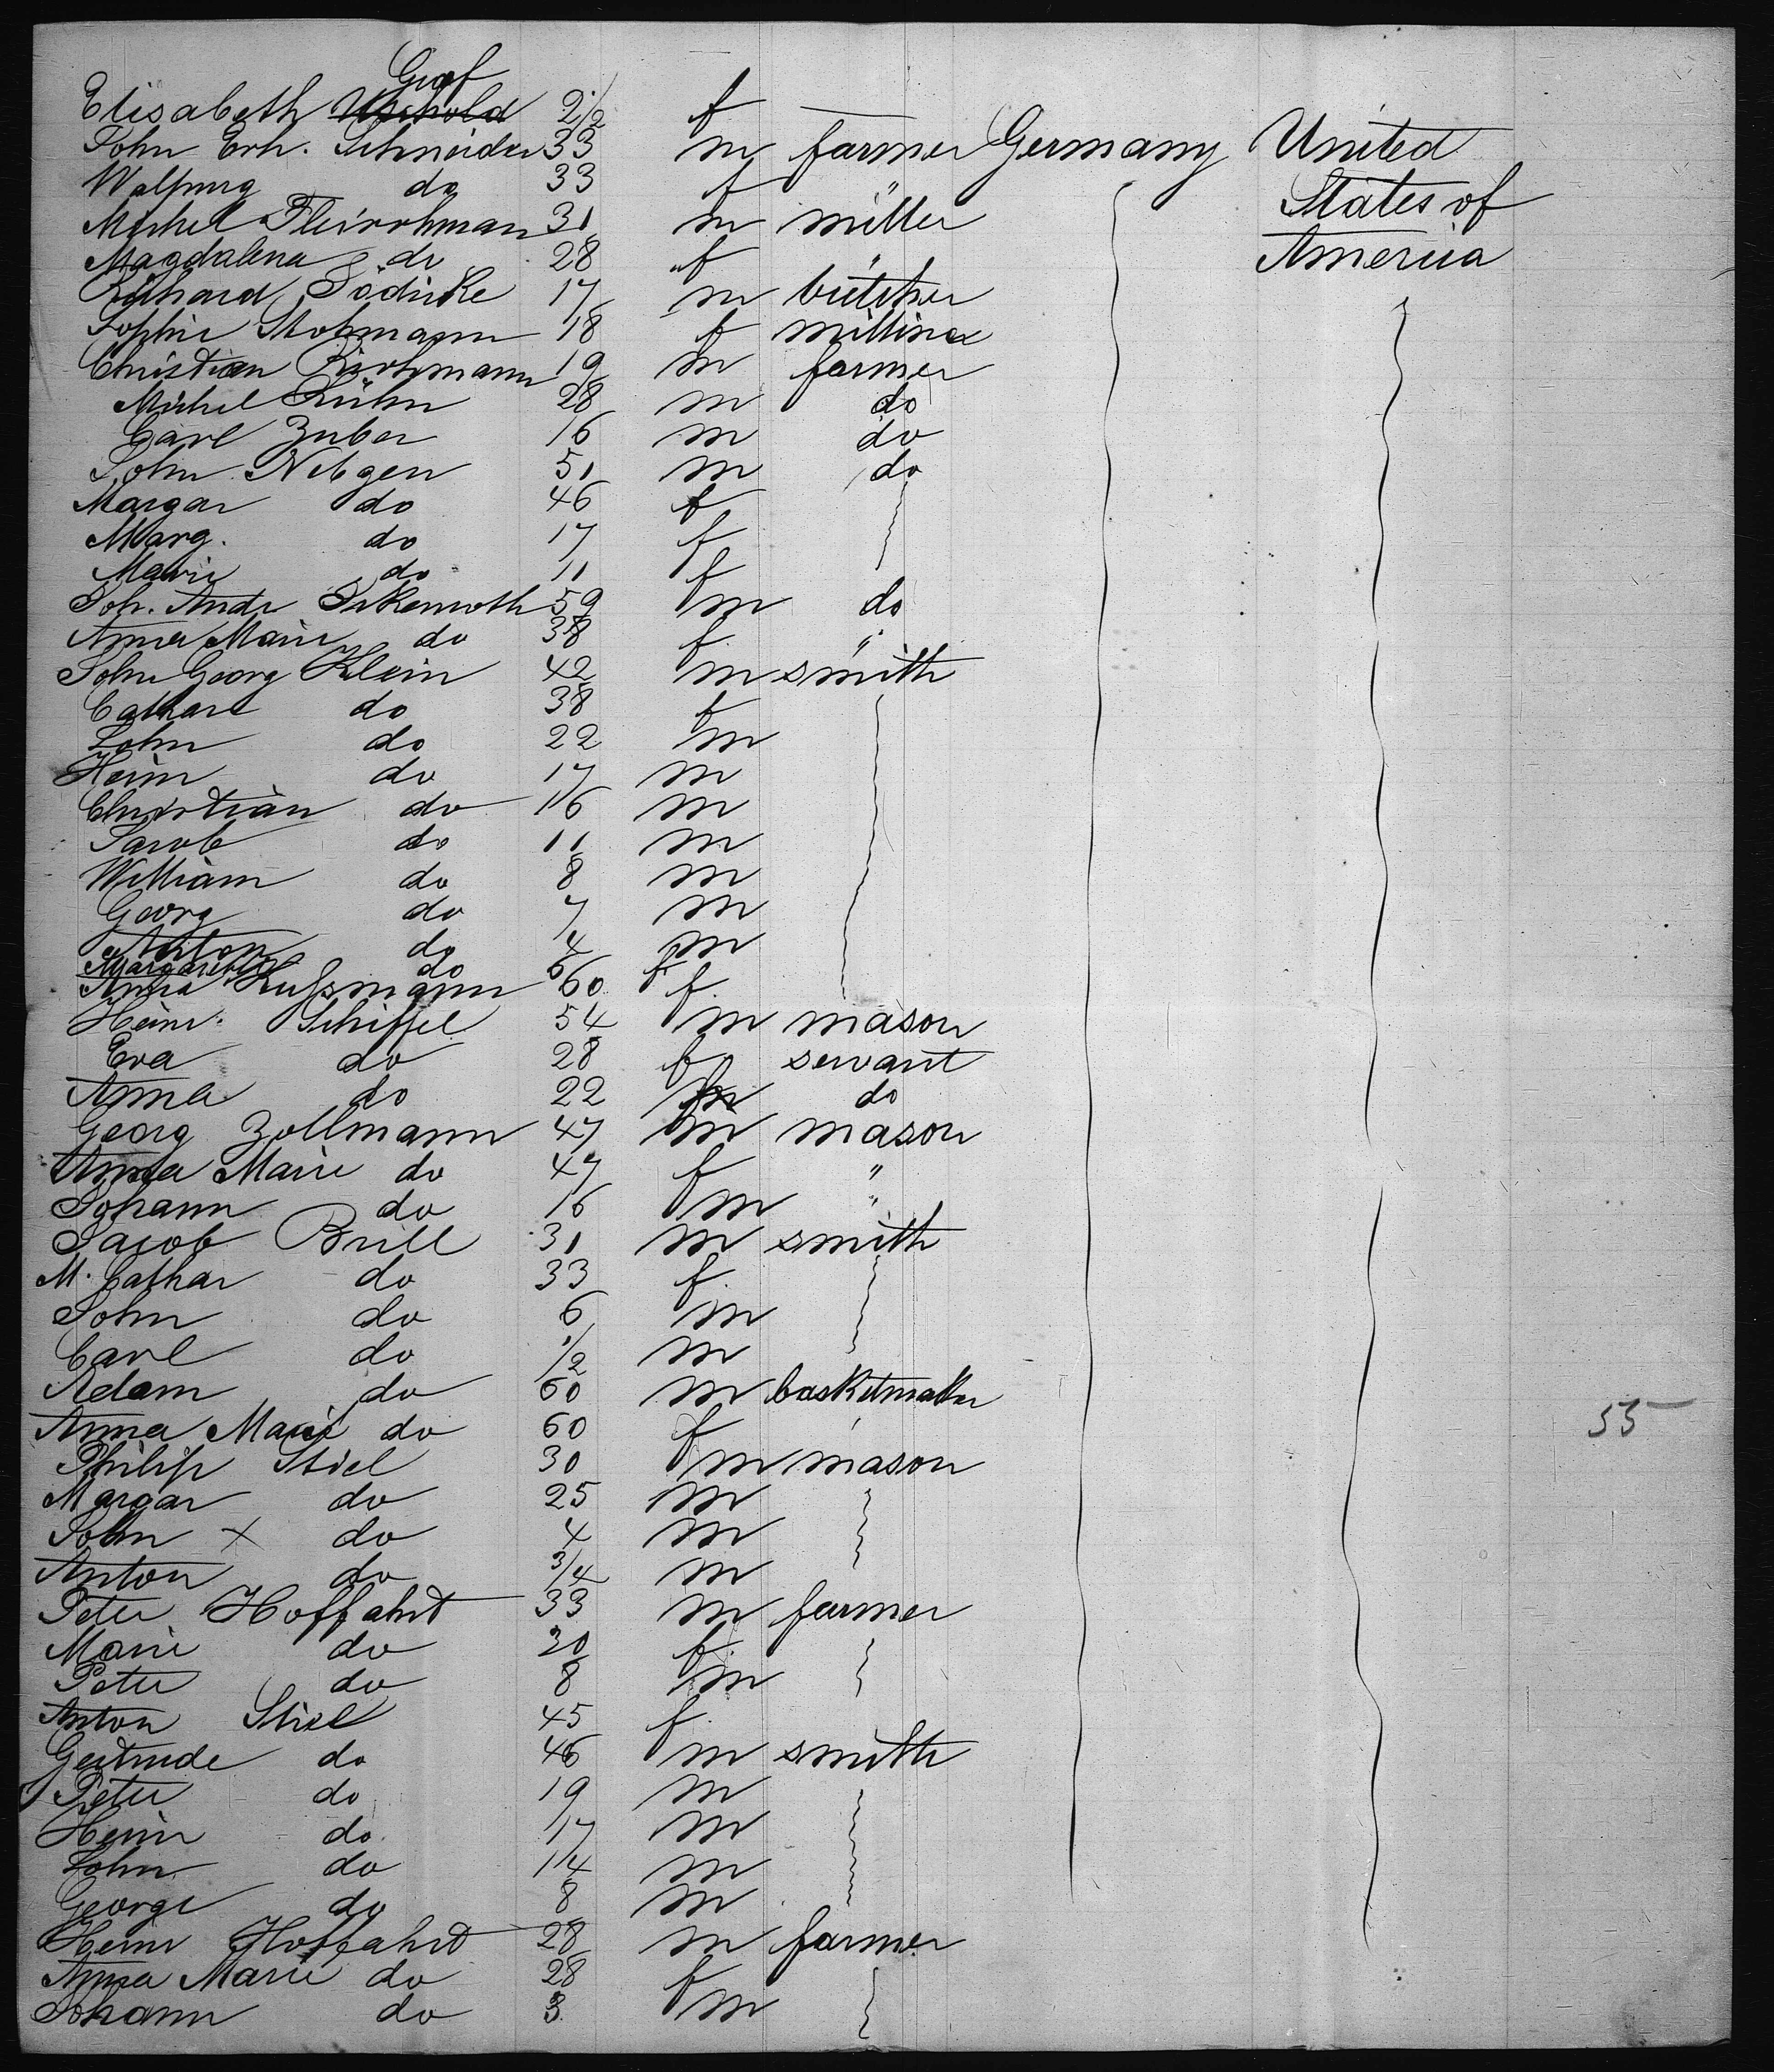 Graf
Elisabeth 2 1/2 f
John Erh. Schneider 33 m farmer Germany United
Walpurg do 33 f " States of
Michel Fleischman 31 m miller America
Magdalena do 28 f "
Richard Södicke 17 m butcher
Sophie Stohmann 18 f milliner
Christian 19 m farmer
Michel Kühn 28 m do
Carl Zuber 16 m do
John Nebgen 51 m do
Margar do 46 f
Marg. do 17 f
Marie do 11 f
Joh. Andr 59 m do
Anna Marie do 38 f "
John Georg Klein 42 m smith
Cathar do 38 f
John do 22 m
Heinr do 17 m
Christian do 16 m
Jacob do 11 m
William do 8 m
Georg do 7 m
Anton do 4 m
Margareth do 6 f
Anna 60 f
Heinr. Schiffel 54 m mason
Eva do 28 f servant
Anna do 22 do
Georg Zollmann 47 m mason
Anna Marie do 47 f "
Johann do 16 m "
Jacob Brill 31 m smith
M. Cathar do 33 f
John do 6 m
Carl do 1/2 m
Adam do 60 m basketmaker
Anna Marie do 60 f
55
Philip Stiel 30 m mason
Margar do 25 m
John x do 4 m
Anton do 3/4 m
Peter Hoffahrt 33 m farmer
Marie do 30 f
Peter do 8 m
Anton Stiel 45 f
Gertrude do 46 m smith
Peter do 19 m
Heinr do 17 m
John do 14 m
George do 8 m
Heinr Hoffahrt 28 m farmer
Anna Marie do 28 f
Johann do 3 m